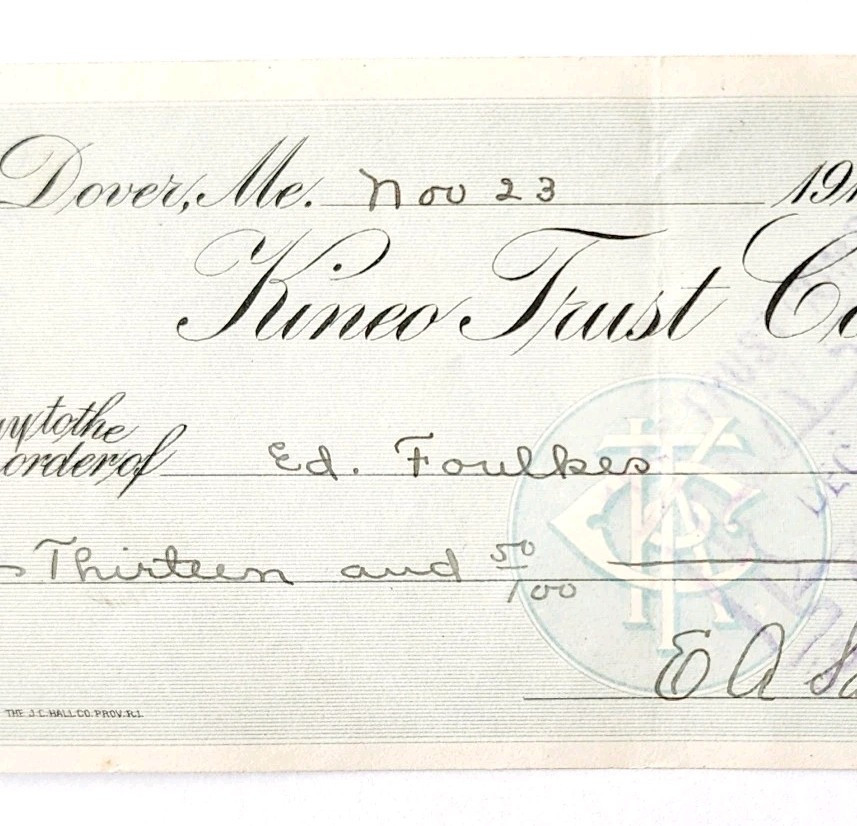 Dover, Me. Nov 23 191
Kineo Trust Co
to the
order of Ed. Foulkes
Thirteen and 50/100
E A
THE J.C. HALL CO. PROV. R.I.
DEC